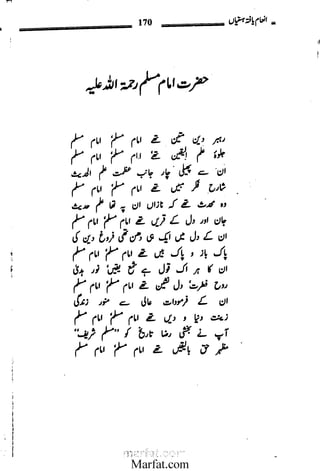 انعام یافتہ ہستیاں
170
حضرت امام مسلم رحمۃ اللہ علیہ
رہبر دین متین تھے امام مسلمؒ امام مسلم
جلوۂ علم الیقین تھے امام مسلمؒ امام مسلم
ان سے پھیلی چار جانب عظمت علم الحدیث
شارح مبیں تھے امام مسلمؒ امام مسلم
وہ محدث تھے کہ نازاں ان پہ تھا علم حدیث
جان اور دل کے قریں تھے امام مسلمؒ امام مسلم
ان کے دل میں ایک ہی دھن تھی فروغ دین کی
پاک باز و پاک بیں تھے امام مسلمؒ امام مسلم
ان کا ہر اک قول ہے شمع یقیں نور ہدیٰ
روح فطرت دل نشین تھے امام مسلمؒ امام مسلم
ان کے فرمودات عالی سے منور زندگی
زینت دنیا و دیں تھے امام مسلمؒ امام مسلم
آپ نے بخشی رضا تاریخ کو "مسلم شریف"
مظہر حق بالیقیں تھے امام مسلمؒ امام مسلم
marfat.com
Marfat.com